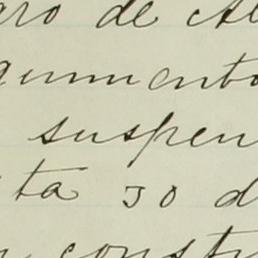 aro de Al
gumento
suspen
ta 30 d
constr